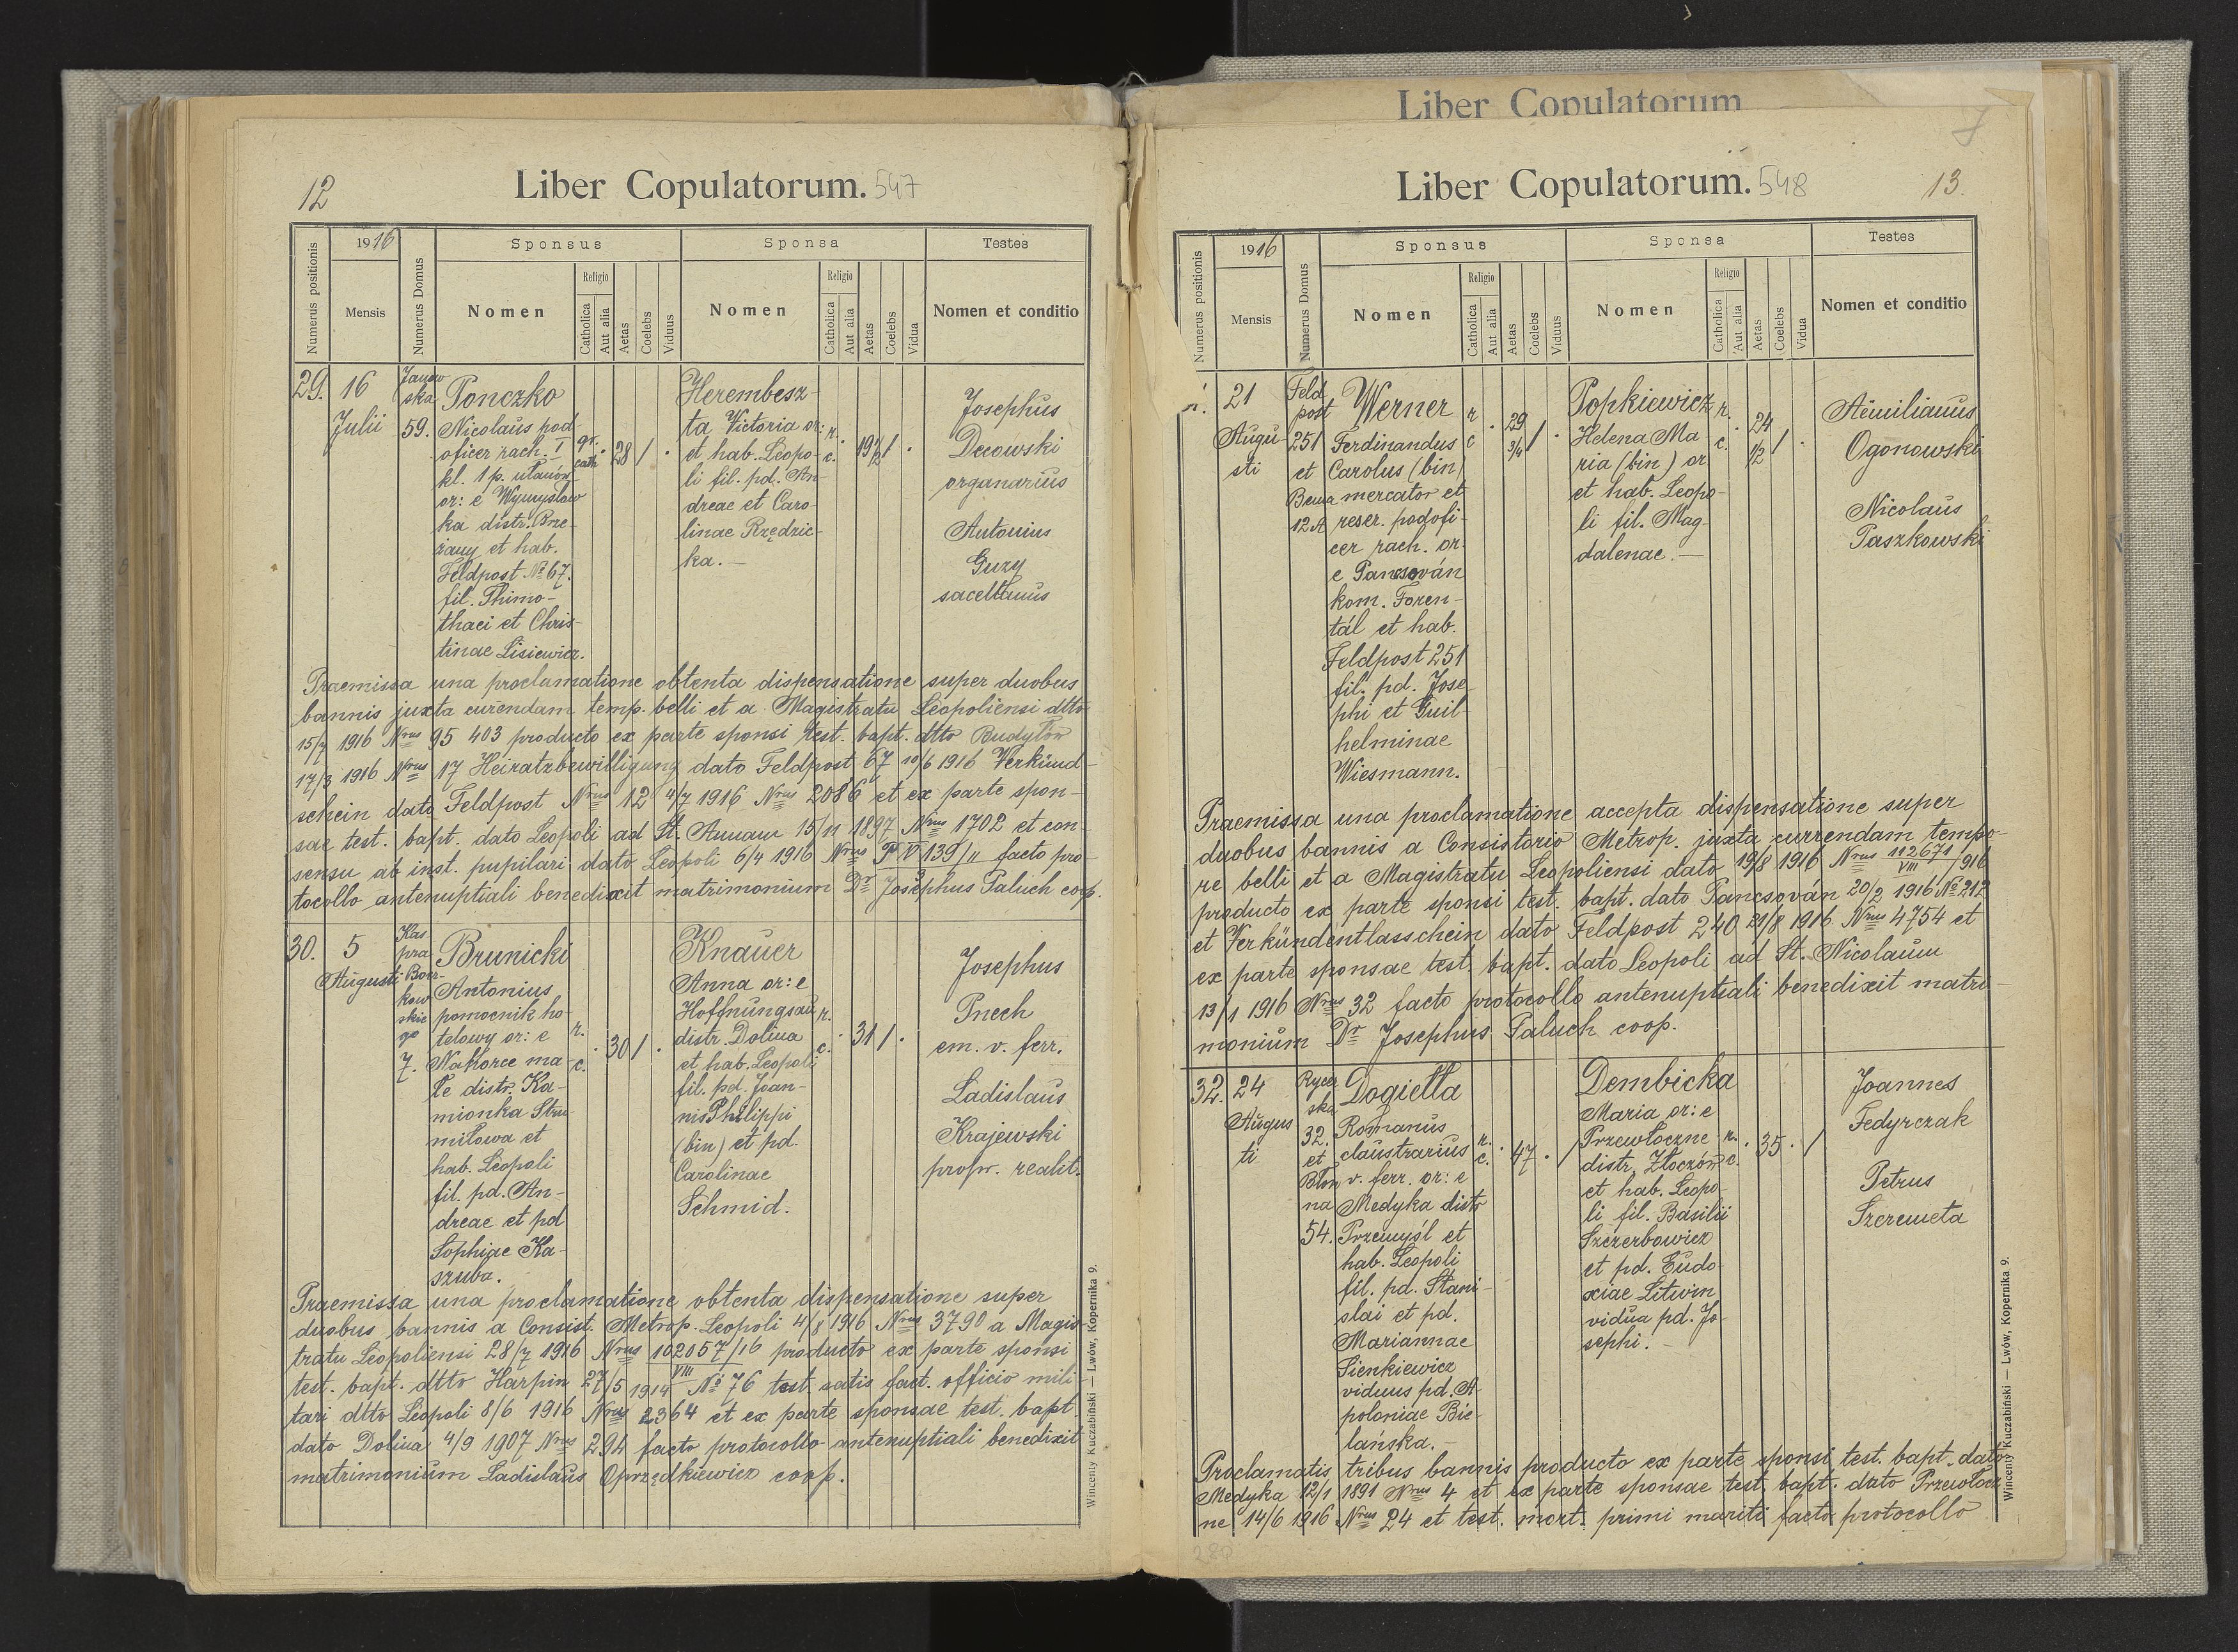 12
Liber Copulatorum. 547
Numerus positionis
1916
Mensis
Numerus Domus
Sponsus
Nomen
Religio
Catholica
Aut alia
Aetas
Coelebs
Viduus
Sponsa
Nomen
Religio
Catholica
Aut alia
Aetas
Coelebs
Vidua
Testes
Nomen et conditio
29.
16
Julii
Janow
ska
59.
Ponczko
Nicolaus pod
oficer rach. I
kl. 1 p. ułanów
or: e Wymysłow
ka distr. Brze-
żany et hab.
Feldpost No 67.
fil. Thimo-
thaei et Chris-
tinae Lisiewicz.
gr.
cath
28
/
Herembesz-
ta Victoria or:
et hab. Leopo-
li fil. pd. An-
dreae et Caro-
linae Rzędzic-
ka. —
r.
c.
19 1/2
/
Josephus
Decowski
organarius
Antonius
Guzy
sacellanus
Praemissa una proclamatione obtenta dispensatione super duobus
bannis juxta curendam temp. belli et a Magistratu Leopoliensi dtto
15/7 1916 Nrus 95 403 producto ex parte sponsi test. bapt. dtto Budyłów
17/3 1916 Nrus 17 Heiratzbewilligung dato Feldpost 67 10/6 1916 Verkünd-
schein dato Feldpost Nrus 12 4/7 1916 Nrus 2086 et ex parte spon-
sae test. bapt. dato Leopoli ad St. Annam 15/11 1897 Nrus 1702 et con-
sensu ab inst. pupilari dato Leopoli 6/4 1916 Nrus P V 139/11 facto pro-
tocollo antenuptiali benedixit matrimonium Dr Josephus Paluch coop.
30.
5
Augusti
Kas
pra
Bocz-
kow
skie
go
7.
Brunicki
Antonius
pomocnik ho-
telowy or: e
Nahorce ma-
łe distr. Ka-
mionka Stru-
miłowa et
hab. Leopoli
fil. pd. An-
dreae et pd
Sophiae Ka-
szuba.
r.
c.
30
/
Knauer
Anna or: e
Hoffnungsau
distr. Dolina
et hab. Leopoli
fil. pd. Joan-
nis Philippi
(bin) et pd.
Carolinae
Schmid.
r.
c.
31
/
Josephus
Pnech
em. v. ferr.
Ladislaus
Krajewski
propr. realit.
Praemissa una proclamatione obtenta dispensatione super
duobus bannis a Consist. Metrop. Leopoli 4/8 1916 Nrus 3790 a Magis-
tratu Leopoliensi 28/7 1916 Nrus 102057/16 VIII producto ex parte sponsi
test. bapt. dtto Harpin 27/5 1914 No 76 test. satis fact. officio mili
tari dtto Leopoli 8/6 1916 Nrus 2364 et ex parte sponsae test. bapt
dato Dolina 4/9 1907 Nrus 294 facto protocollo antenuptiali benedixit
matrimonium Ladislaus Oprządkiewicz coop.
Wincenty Kuczabiński — Lwów, Kopernika 9.
Liber Copulatorum
Liber Copulatorum. 548
13.
Numerus positionis
1916
Mensis
Numerus Domus
Sponsus
Nomen
Religio
Catholica
Aut alia
Aetas
Coelebs
Viduus
Sponsa
Nomen
Religio
Catholica
Aut alia
Aetas
Coelebs
Vidua
Testes
Nomen et conditio
21
Augu
sti
Feld
post
251
et
Bema
12 A
Werner
Ferdinandus
Carolus (bin)
mercator et
reser. podofi-
cer rach. or.
e Pancsován
kom. Toren-
tál et hab.
Feldpost 251
fil. pd. Jose
phi et Guil-
helminae
Wiesmann.
r
c
29
3/4
/
Popkiewicz
Helena Ma
ria (bin) or
et hab. Leopo-
li fil. Mag-
dalenae. —
r.
c.
24
1/2
/
Aemilianus
Ogonowski
Nicolaus
Paszkowski
Praemissa una proclamatione accepta dispensatione super
duobus bannis a Consistorio Metrop. juxta currendam tempo-
re belli et a Magistratu Leopoliensi dato 19/8 1916 Nrus 112671/916 VIII
producto ex parte sponsi test. bapt. dato Pancsován 20/2 1916 No 212
et Verkündentlasschein dato Feldpost 240 21/8 1916 Nrus 4754 et
ex parte sponsae test. bapt. dato Leopoli ad St. Nicolaum
13/1 1916 Nrus 32 facto protocollo antenuptiali benedixit matri-
monium Dr Josephus Paluch coop.
32.
24
Augus
ti
Rycer
ska
32.
et
Błon
na
54.
Dogiełła
Romanus
claustrarius
v. ferr. or: e
Medyka distr
Przemyśl et
hab. Leopoli
fil. pd. Stani-
slai et pd.
Mariannae
Sienkiewicz
viduus pd. A-
poloniae Bie-
lańska. —
r.
c.
47
/
Dembicka
Maria or: e
Przewłoczne
distr. Złoczów
et hab. Leopo-
li fil. Basilii
Szczerbowicz
et pd. Eudo-
xiae Litwin
vidua pd. Jo-
sephi. —
r.
c.
35
/
Joannes
Fedyrczak
Petrus
Szeremeta
Proclamatis tribus bannis producto ex parte sponsi test. bapt. dato
Medyka 12/1 1891 Nrus 4 et ex parte sponsae test. bapt. dato Przewłocz
ne 14/6 1916 Nrus 24 et test. mort. primi mariti facto protocollo
Wincenty Kuczabiński — Lwów, Kopernika 9.
280